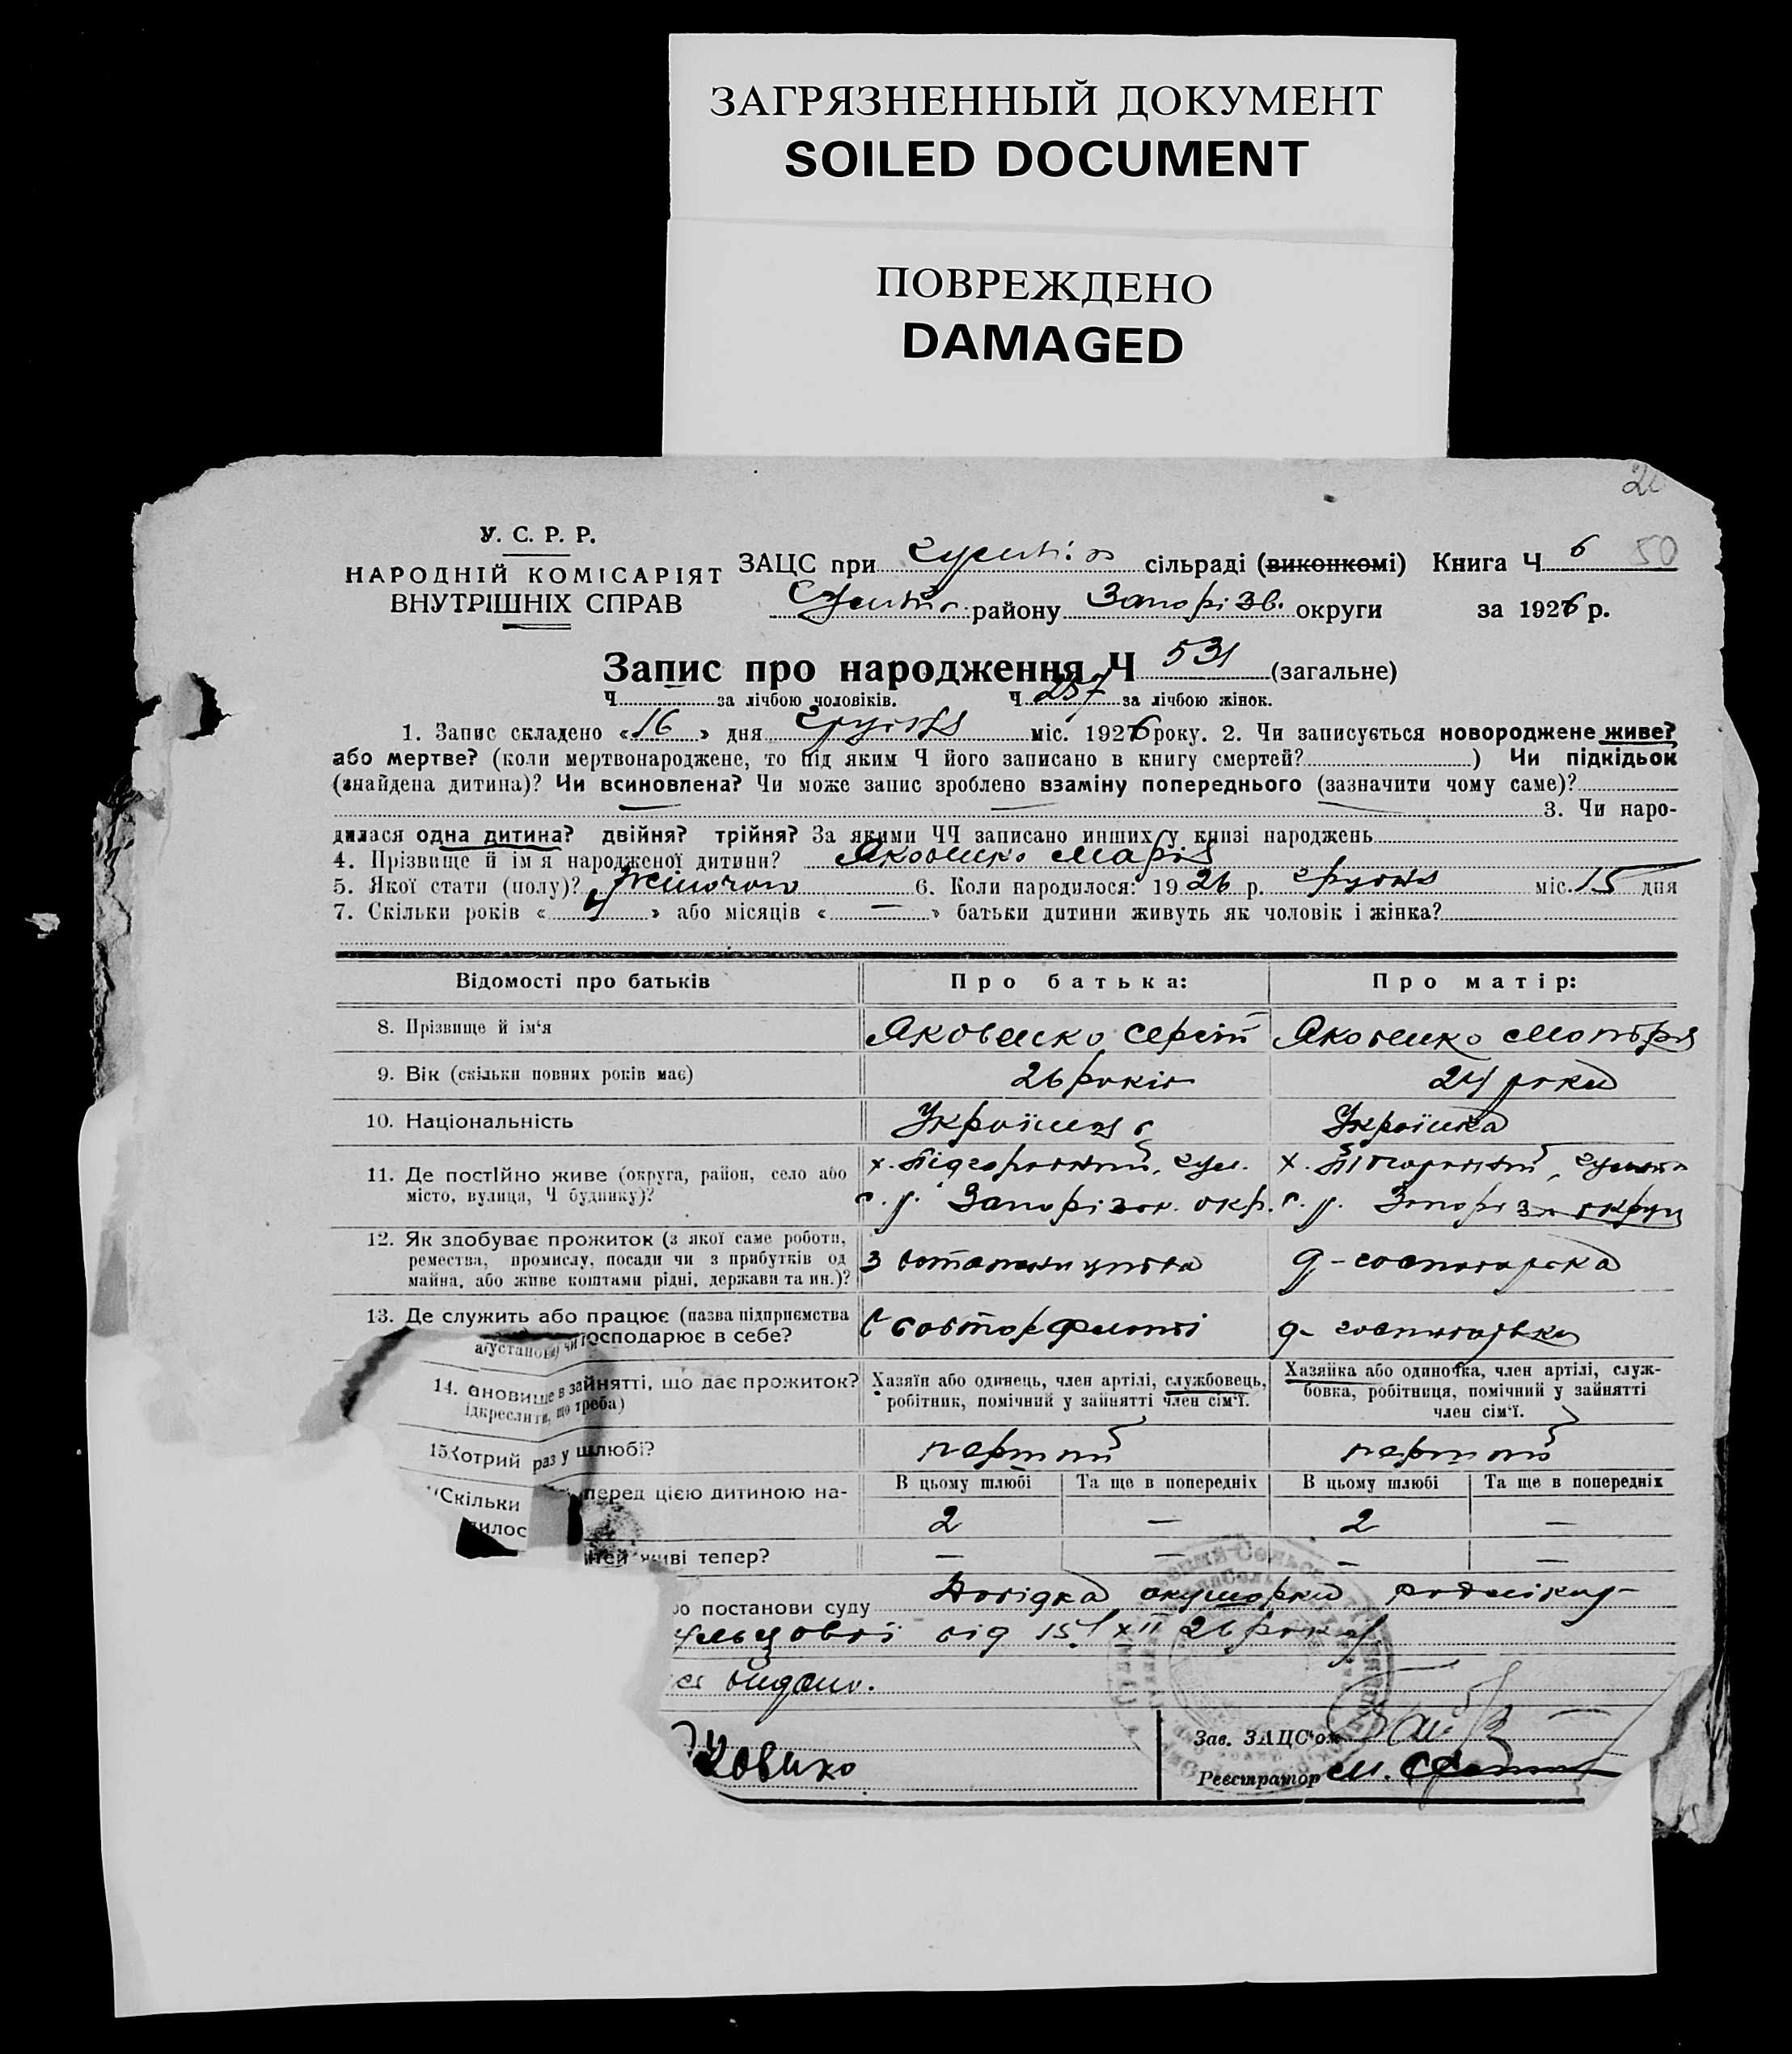 ЗАГРЯЗНЕННЫЙ ДОКУМЕНТ
SOILED DOCUMENT
ПОВРЕЖДЕНО
DAMAGED
У. С. Р. Р.
НАРОДНІЙ КОМІСАРІЯТ
ВНУТРІШНІХ СПРАВ
ЗАЦС при сільраді (виконкомі) Книга Ч 6 50
району Запорізь. округи за 1926 р.
Запис про народження Ч 531 (загальне)
Ч за лічбою чоловіків. Ч 257 за лічбою жінок.
1. Запис складено «16» дня грудня міс. 1926 року. 2. Чи записується новороджене живе?
або мертве? (коли мертвонароджене, то під яким Ч його записано в книгу смертей? ) Чи підкідьок
(знайдена дитина)? Чи всиновлена? Чи може запис зроблено взаміну попереднього (зазначити чому саме)?
3. Чи наро-
дилася одна дитина? двійня? трійня? За якими ЧЧ записано инших у книзі народжень
4. Прізвище й ім'я народженої дитини? Яковенко Марія
5. Якої стати (полу)? жіночого 6. Коли народилося: 1926 р. грудня міс. 15 дня
7. Скільки років « 4 » або місяців « — » батьки дитини живуть як чоловік і жінка?
Відомості про батьків Про батька: Про матір:
8. Прізвище й ім'я Яковенко Сергій Яковенко Мотря
9. Вік (скільки повних років має) 26 років 24 роки
10. Національність Українець Українка
11. Де постійно живе (округа, район, село або х. Підгородний,
місто, вулиця, Ч будинку)? с. р. Запорізьк. окр. с. р. округи
12. Як здобуває прожиток (з якої саме роботи,
ремества, промислу, посади чи з прибутків од
майна, або живе коштами рідні, держави та ин.)? д-господарка
13. Де служить або працює (назва підприємства
установи) чи господарює в себе? д-господарка
14. ановище в зайнятті, що дає прожиток? Хазяїн або одинець, член артілі, службовець, Хазяйка або одиночка, член артілі, служ-
ідкреслити, що треба) робітник, помічний у зайнятті член сім'ї. бовка, робітниця, помічний у зайнятті
член сім'ї.
15. Котрий раз у шлюбі? перший перший
Скільки перед цією дитиною на- В цьому шлюбі Та ще в попередніх В цьому шлюбі Та ще в попередніх
илос 2 — 2 —
ітей живі тепер? — — — —
постанови суду Довідка акушорки
від 15/XII 26 року
видано.
Яковенко
Зав. ЗАЦС'ом
Реєстратор М.